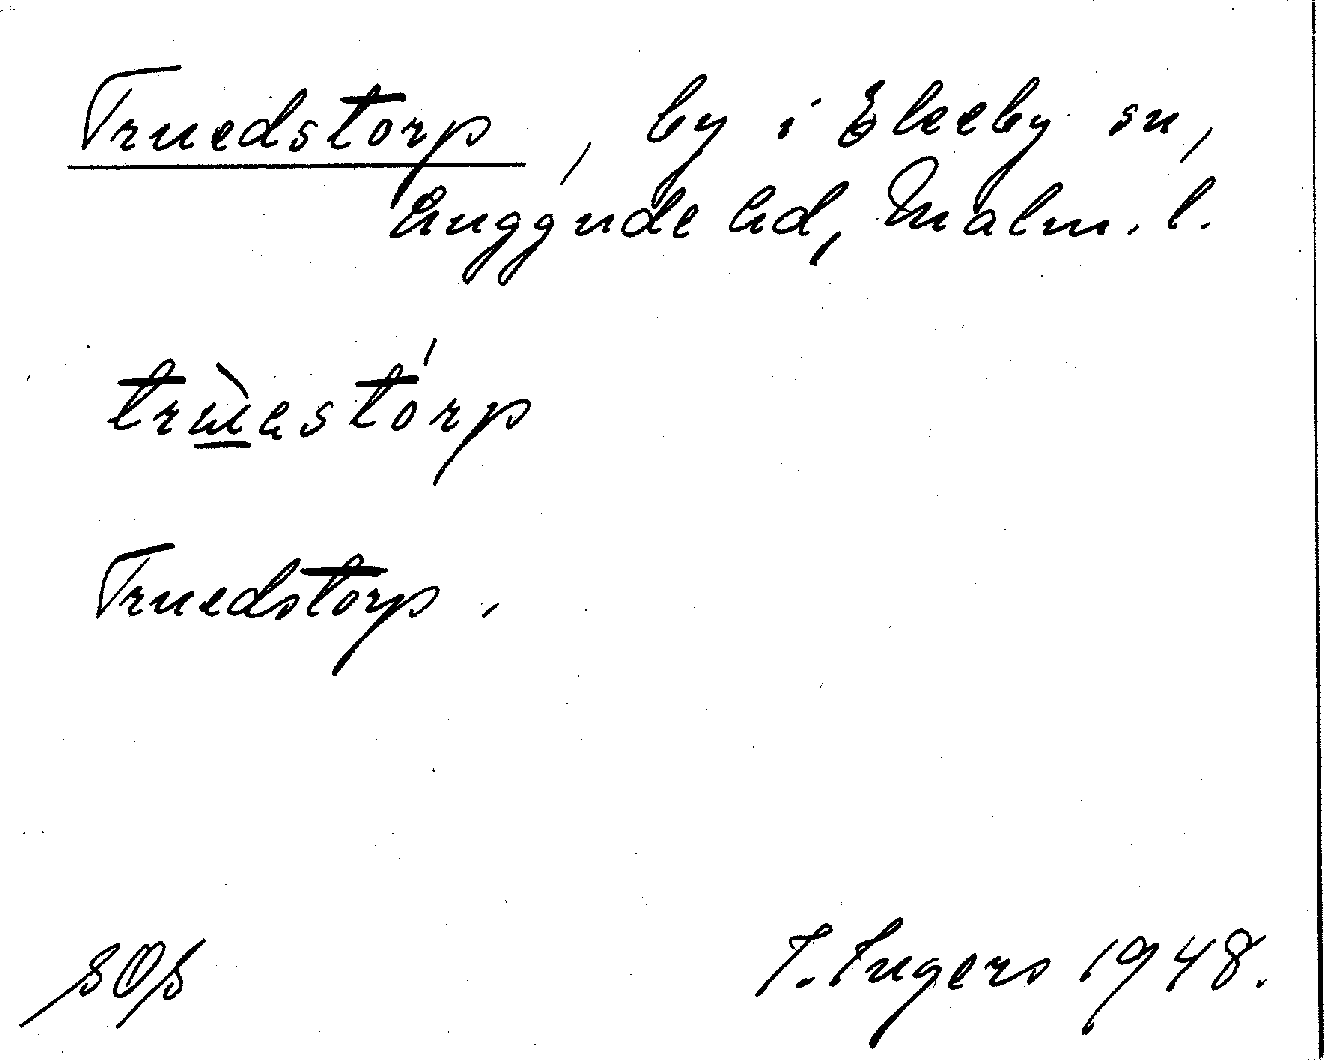 Truedstorp, by i Ekeby sn,
Luggude hd, Malm. l.
trùestórp
Truedstorp.
SOS
I. Ingers 1948.